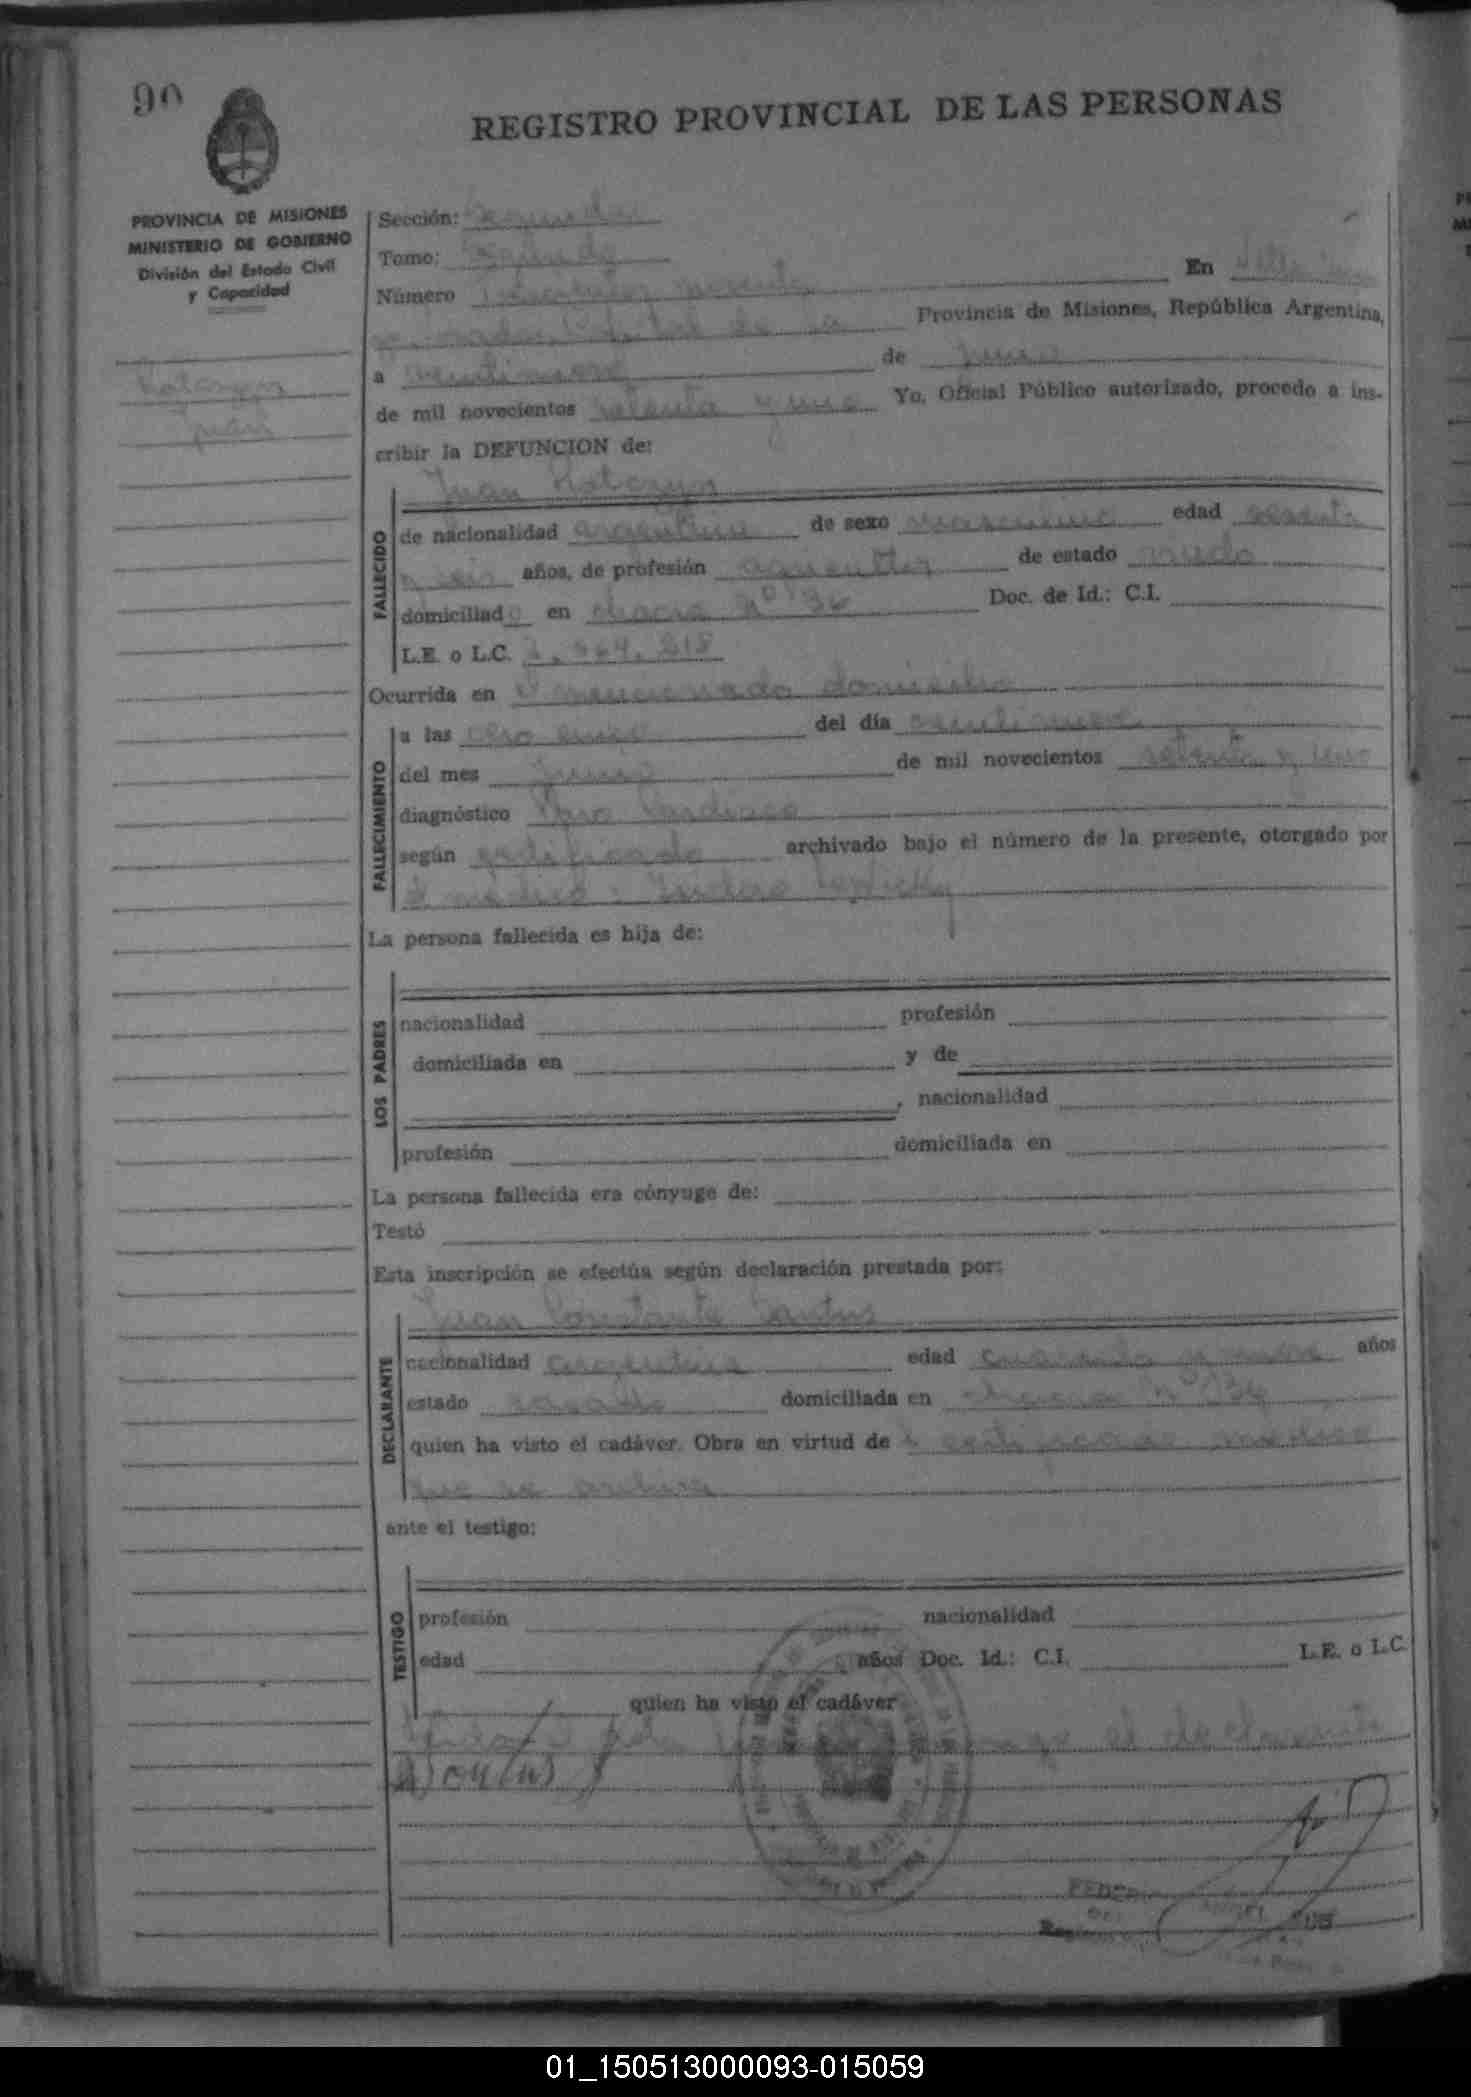 90
REGISTRO PROVINCIAL DE LAS PERSONAS
PROVINCIA DE MISIONES
MINISTERIO DE GOBIERNO
División del Estado Civil
y Capacidad
Juan
Sección: Segunda
Tomo: Segundo
Número noventa En
Capital de la Provincia de Misiones, República Argentina,
a veintinueve de junio
de mil novecientos setenta y uno Yo, Oficial Público autorizado, procedo a ins-
cribir la DEFUNCION de:
Juan
FALLECIDO
de nacionalidad argentina de sexo masculino edad sesenta
y seis años, de profesión agricultor de estado viudo
domiciliado en chacra Nº 36 Doc. de Id.: C.I.
L.E. o L.C.
Ocurrida en el mencionado domicilio
FALLECIMIENTO
a las del día veintinueve
del mes junio de mil novecientos setenta y uno
diagnóstico Paro Cardiaco
según certificado archivado bajo el número de la presente, otorgado por
el médico: Isidoro
La persona fallecida es hija de:
LOS PADRES
nacionalidad profesión
domiciliada en y de
, nacionalidad
profesión domiciliada en
La persona fallecida era cónyuge de:
Testó
Esta inscripción se efectúa según declaración prestada por:
Juan Constante Santos
DECLARANTE
nacionalidad argentina edad cuarenta y nueve años
estado casado domiciliada en chacra Nº 36
quien ha visto el cadáver. Obra en virtud de certificado médico
que se archiva
ante el testigo:
TESTIGO
profesión nacionalidad
edad años Doc. Id.: C.I. L.E. o L.C.
quien ha visto el cadáver
el declarante
01_150513000093-015059